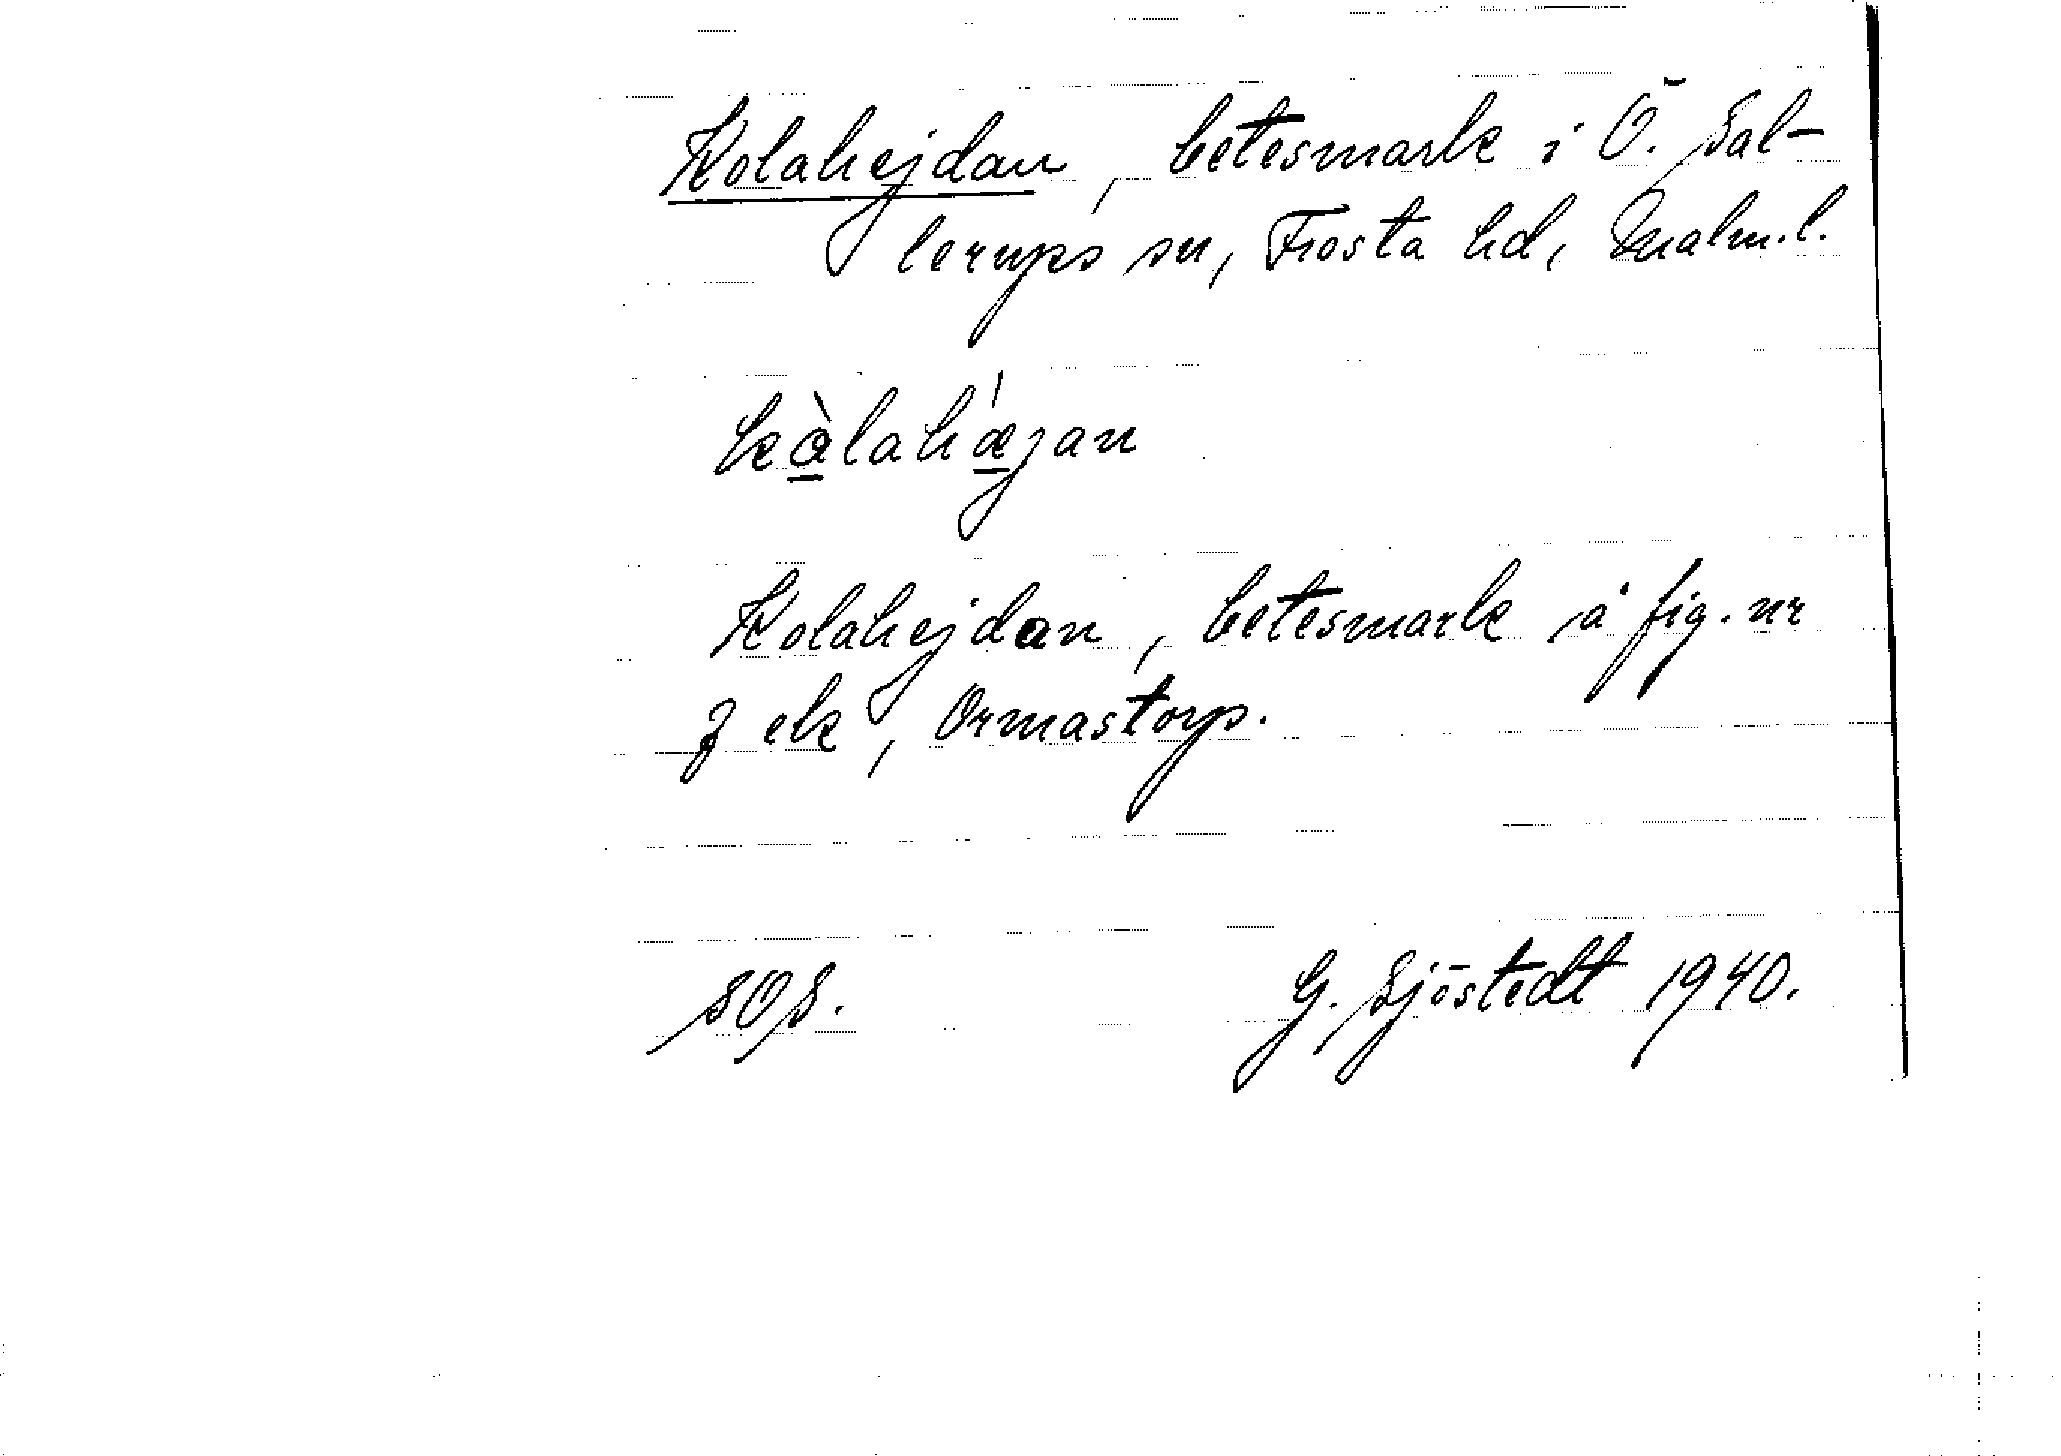 Kolahejdan, betesmark i Ö. Sal-
lerups sn, Frosta hd, Malm.l.
kàlahǽjan
Kolahejdan, betesmark å fig. nr
7 ek, Ormastorp.
SOS.
G. Sjöstedt 1940.